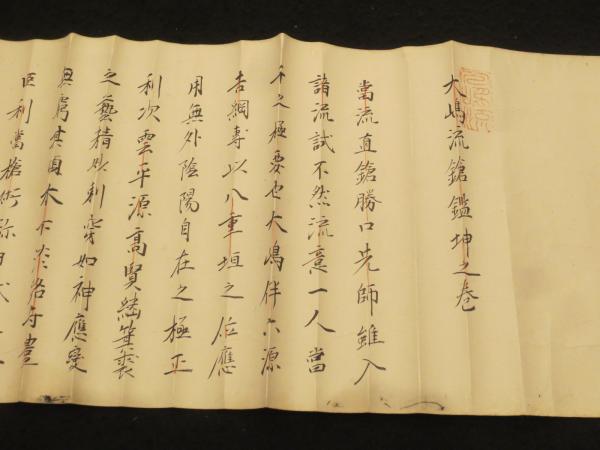 大嶋流鎗鑑坤之巻
當流直鎗勝口先師雖入
諸流試不然流意一人當
千之極要也大嶋伴六源
吉綱専以八重垣之位應
用無外陰陽自在之極正
利次雲平源高賢継箕裘
之藝精妙刺穿如神應変
無窮其
臣利當槍術